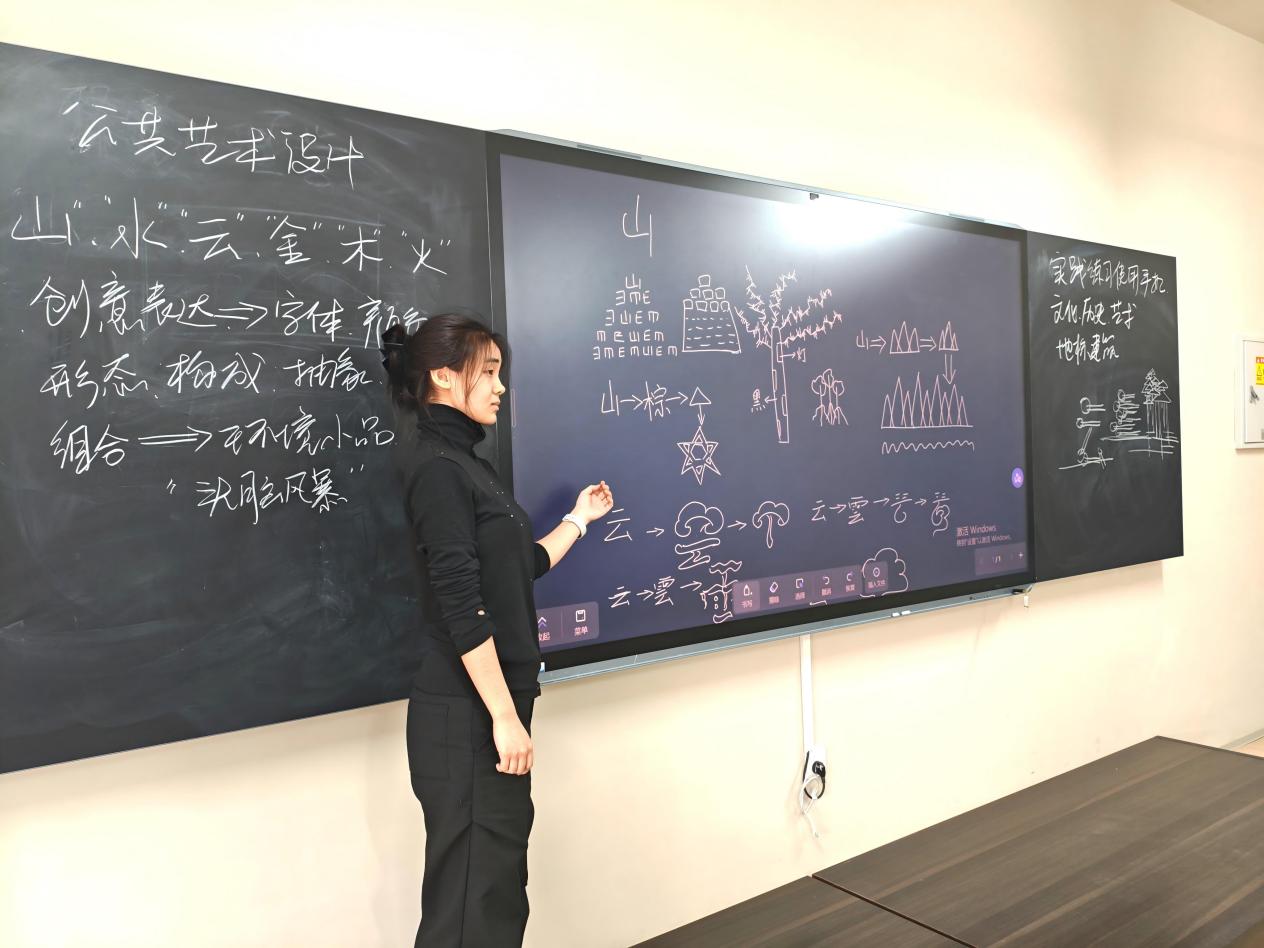 公共艺术设计
山"."水"."云"."金"."木"."火"
创意表达⇒字体.颜色
形态.构成.抽象.
组合⇒环境小品.
"头脑风暴"
山
山
ヨME
山→棕→
红
黑
山→
云→
云→雲→
云→雲→
激活 Windows
转到"设置"以激活 Windows。
收起
菜单
书写
擦除
选择
撤销
恢复
插入文件
1/1
实践练习使用手扎
文化.历史.艺术
地标建筑